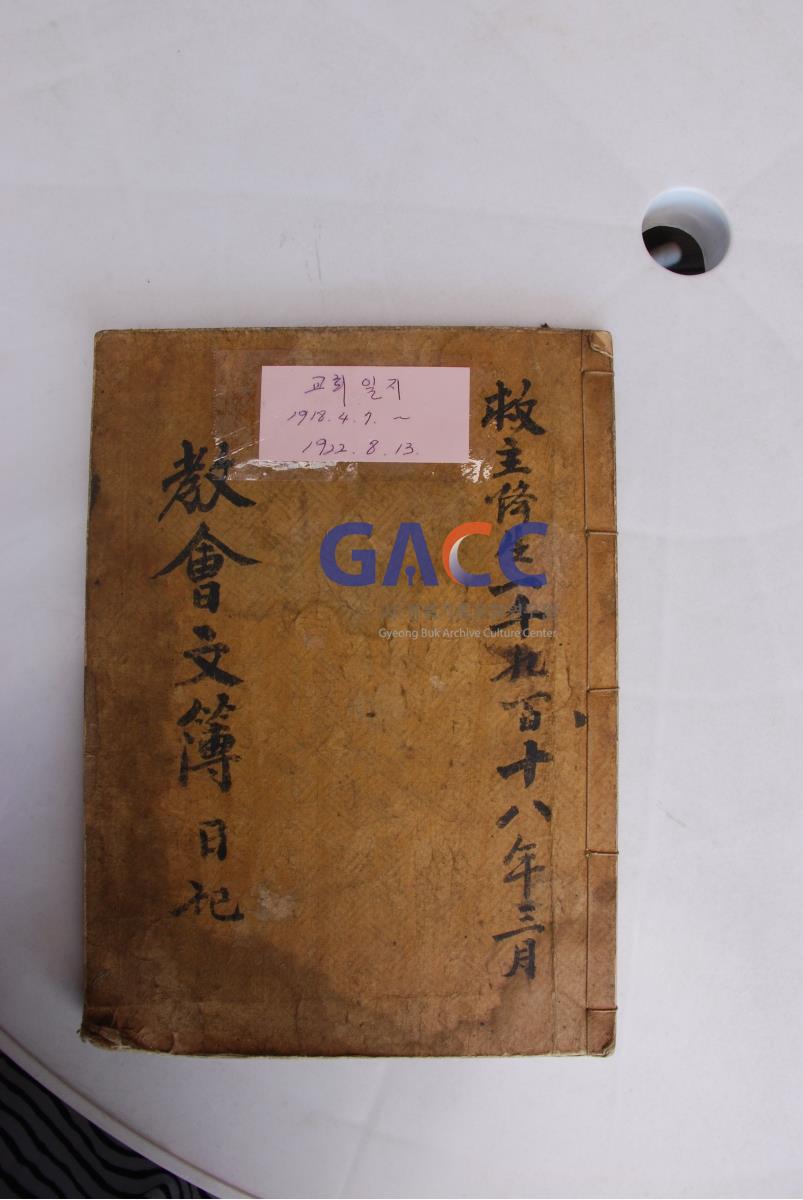 교회 일지
1918. 4. 7. ~
1922. 8. 13.
救主降生一千九百十八年三月
教會文簿 日記
GACC
Gyeong Buk Archive Culture Center